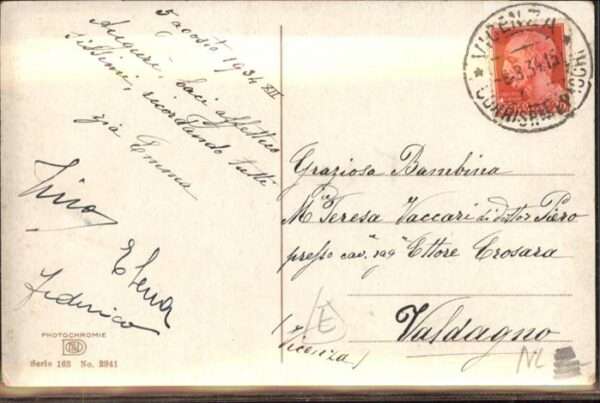 5 agosto 1934 XII
Auguri, baci affettuo
sissimi, ricordando tutti
zia Emma
Nino
Elena
Federico
PHOTOCHROMIE
Serie 165 No. 3941
VICENZA
8.34.15
CORRISP.
Graziosa Bambina
Mᵃ Teresa Vaccari di dottor Piero
presso cav. ragʳ Ettore Crosara
(Vicenza)
Valdagno
E
NL